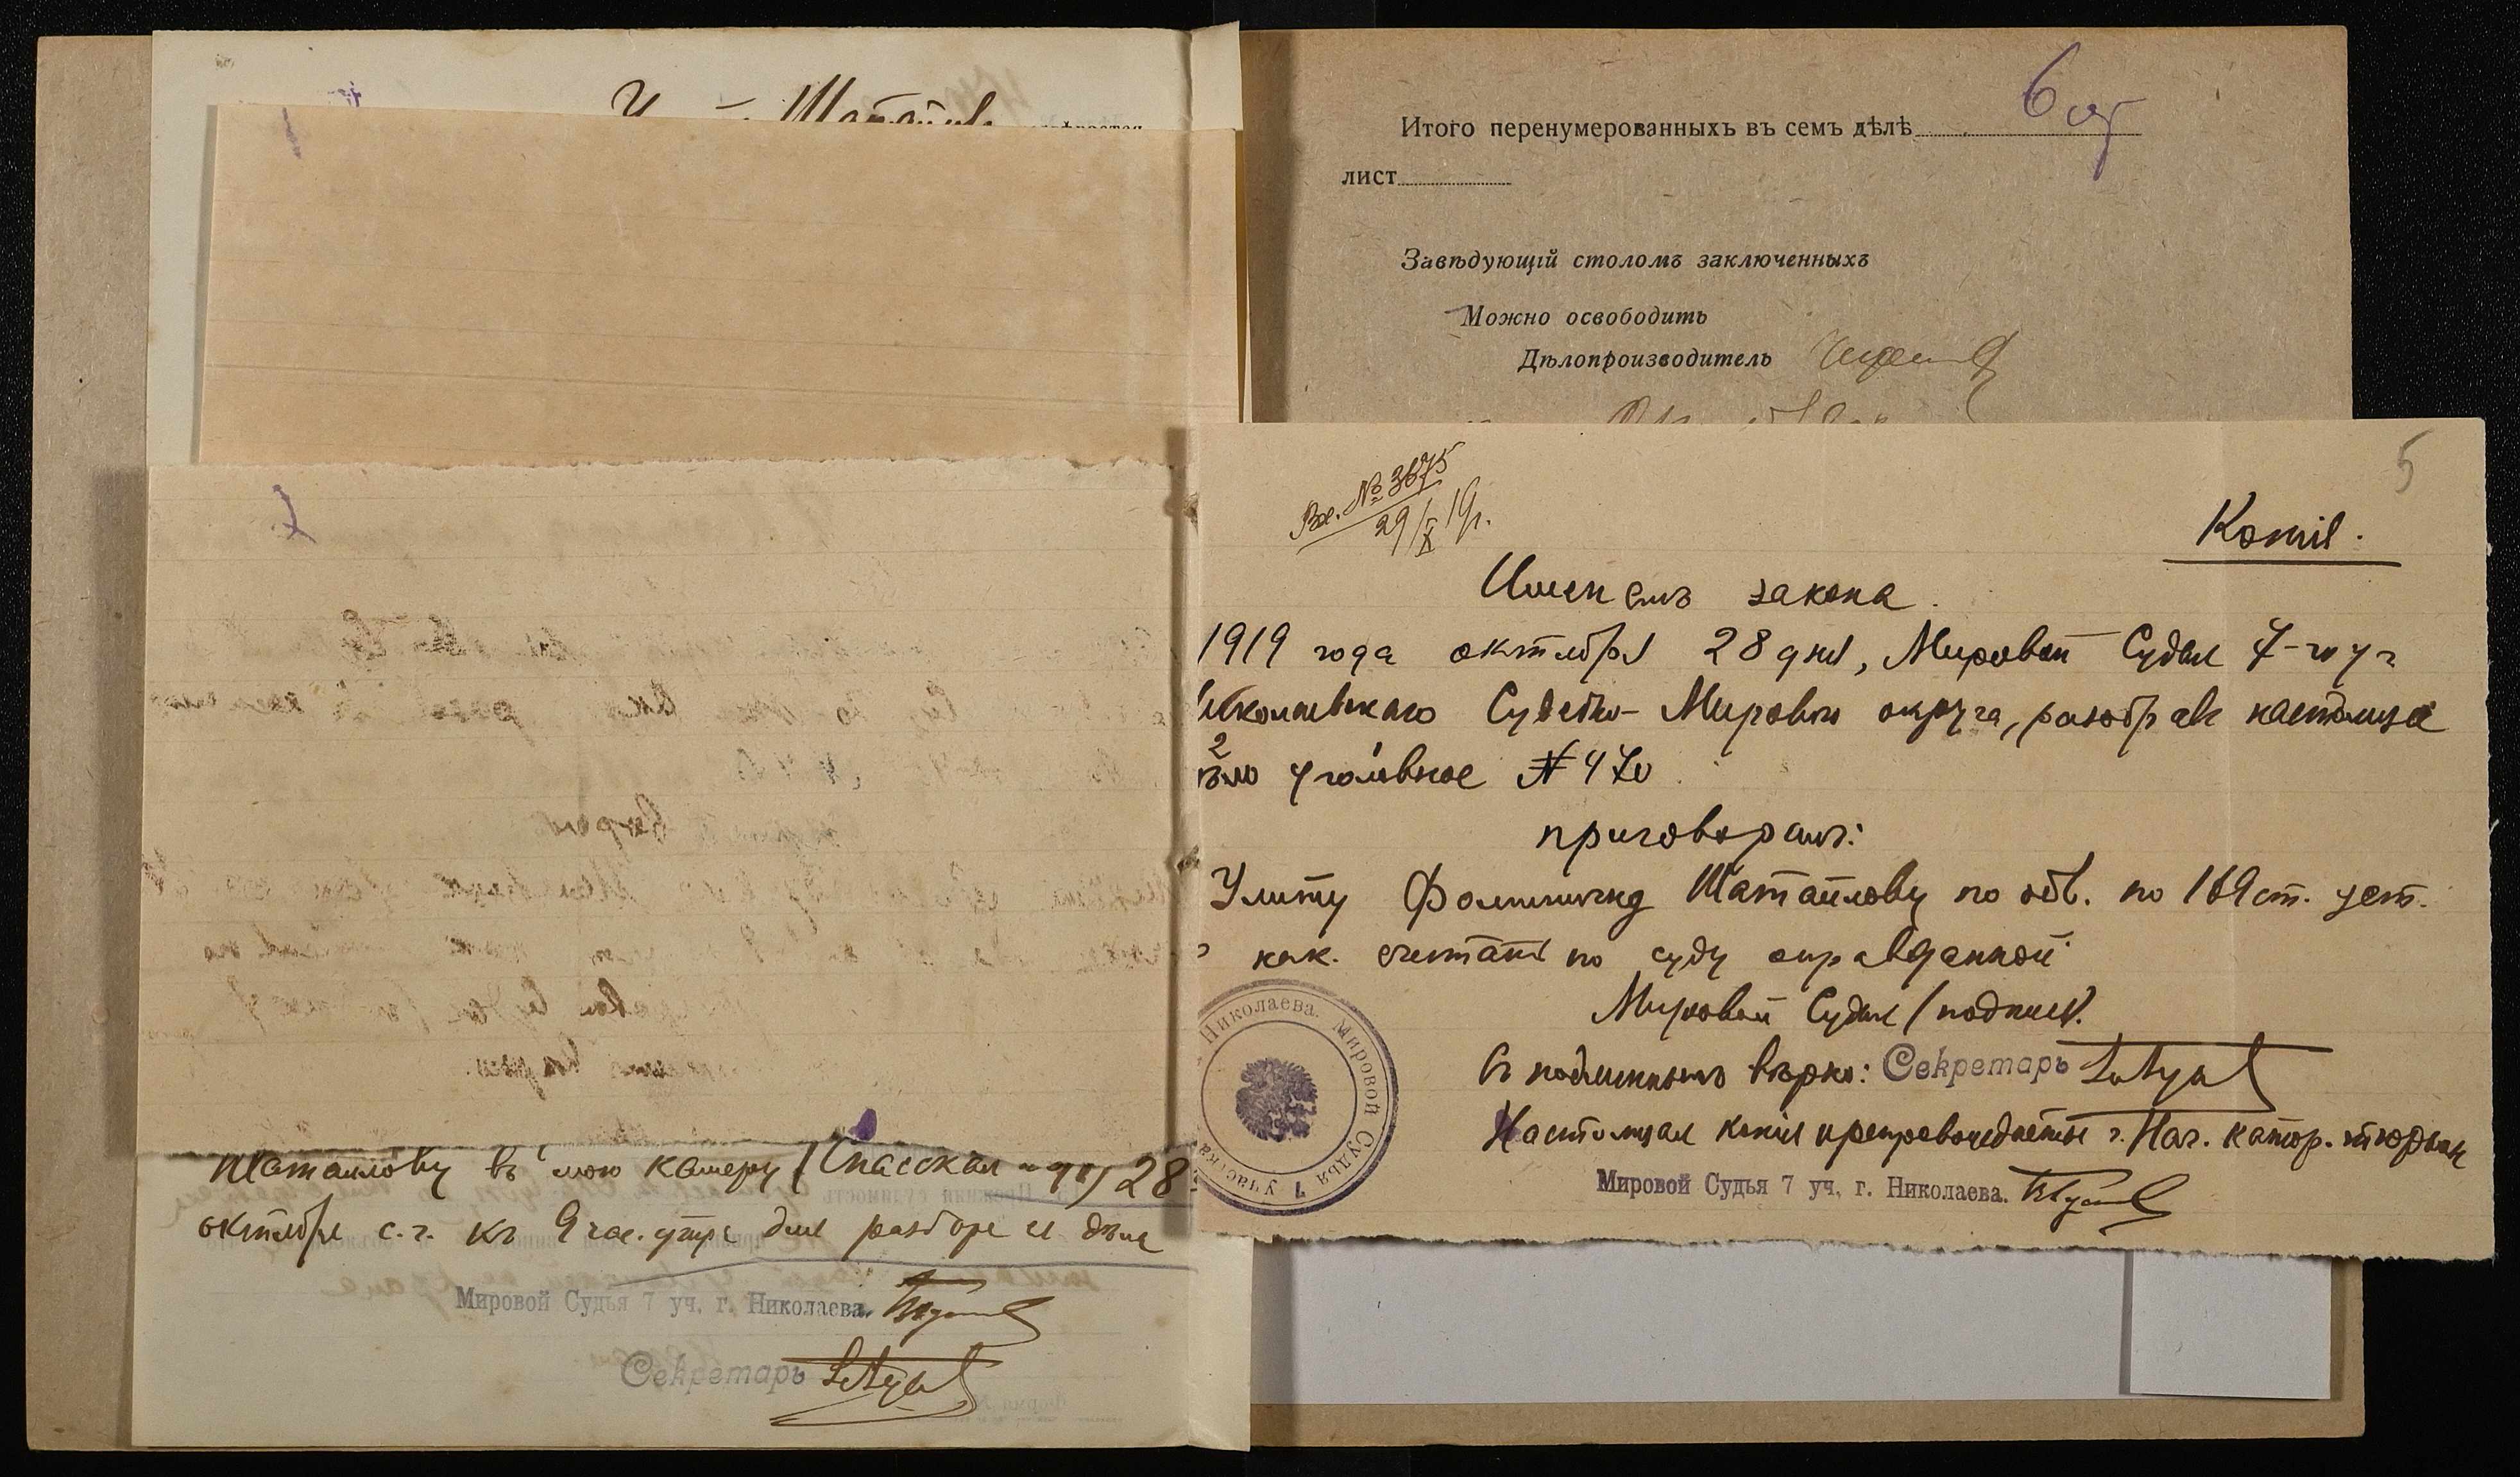 Шатайлов
Итого перенумерованныхъ въ семъ дѣлѣ 6
лист
Завѣдующій столомъ заключенныхъ
Можно освободить
Дѣлопроизводитель
5
Вх. № 3675
29/X 19г.
Копія.
Именемъ закона.
1919 года октября 28 дня, Мировой Судья 7-го уч
Николаевскаго Судебно-Мирового округа, разобрав настоящее
дѣло уголовное № 470
приговорилъ:
Улиту Фоминичну Шатайлову по обв. по 169 ст. уст.
о нак. считать по суду оправданной
Мировой Судья /подпись/.
Съ подлиннымъ вѣрно: Секретарь
Настоящая копія препровождается г. Нач. катор. тюрьмы
Мировой Судья 7 уч. г. Николаева.
Николаева. Мировой Судья 7 участка
Шатайлову въ мою камеру (Спасская 28
октября с.г. къ 9 час. утра для разбора ея дѣла
Мировой Судья 7 уч. г. Николаева.
Секретарь